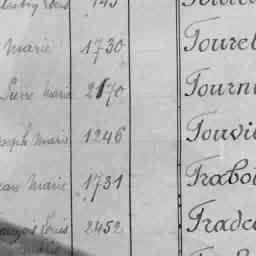 145
Marie 1730 Tourel
Pierre Marie 2170 Tourni
Joseph Marie 1246 Touvil
Jean Marie 1731 Trabot
François Louis 2452 Tradec